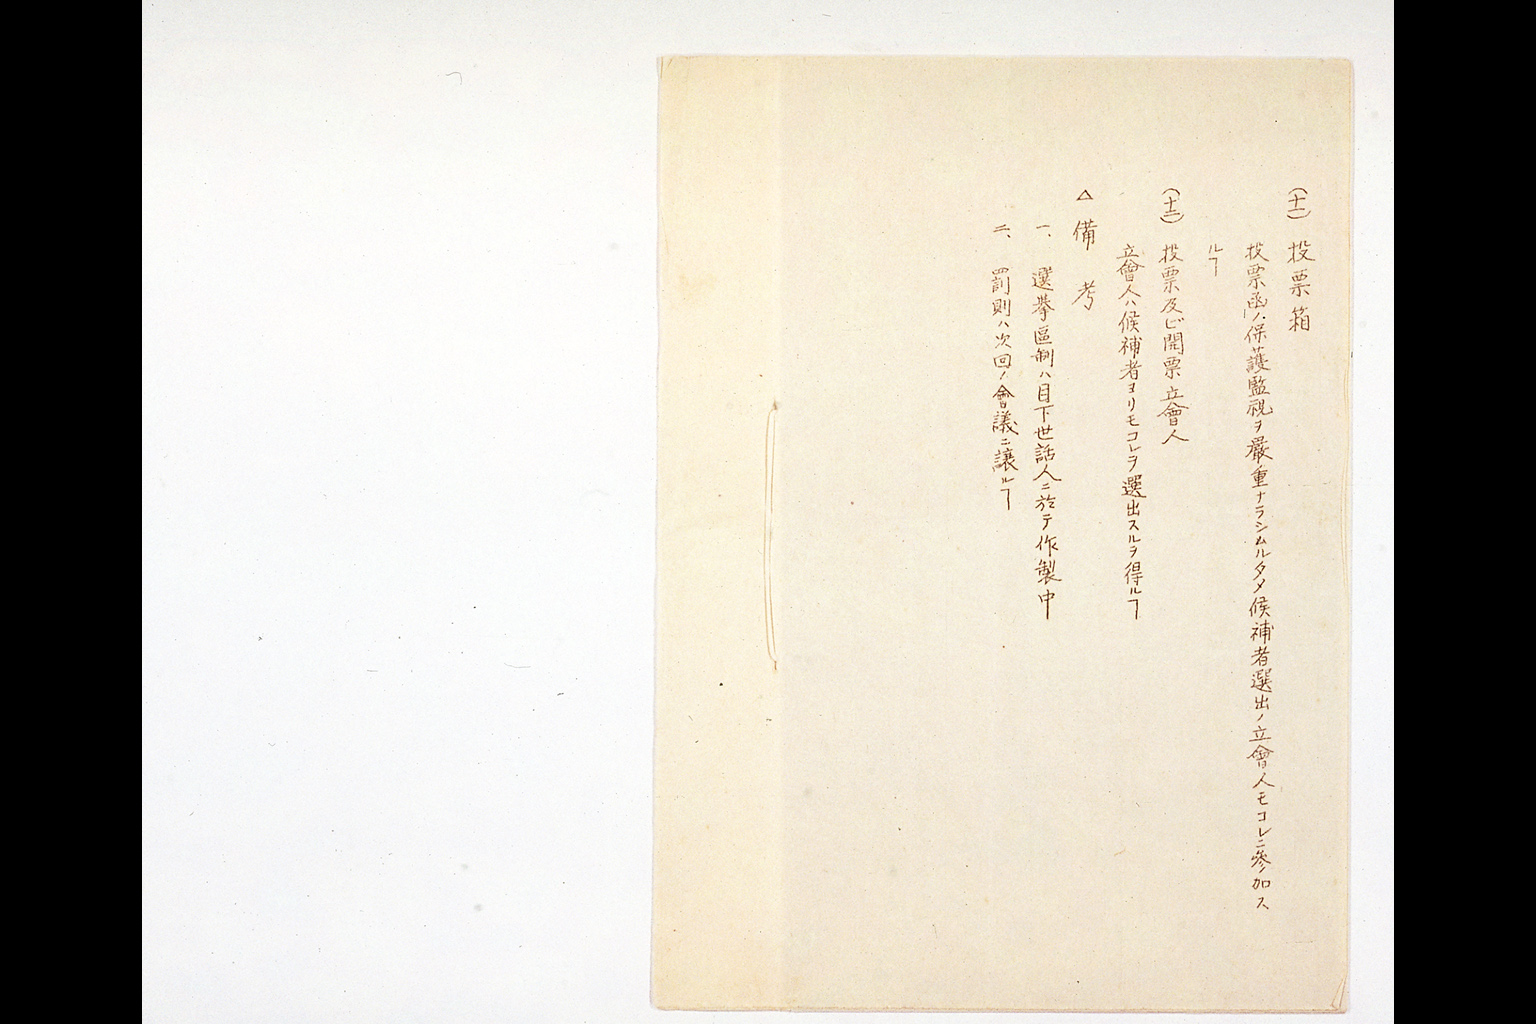 (十一) 投票箱
投票函ノ保護監視ヲ嚴重ナラシムルタメ候補者選出ノ立會人モコレニ參加ス
ルヿ
(十二) 投票及ビ開票立會人
立會人ハ候補者ヨリモコレヲ選出スルヲ得ルヿ
△備考
一、選擧區制ハ目下世話人ニ於テ作製中
二、罰則ハ次回ノ會議ニ譲ルヿ